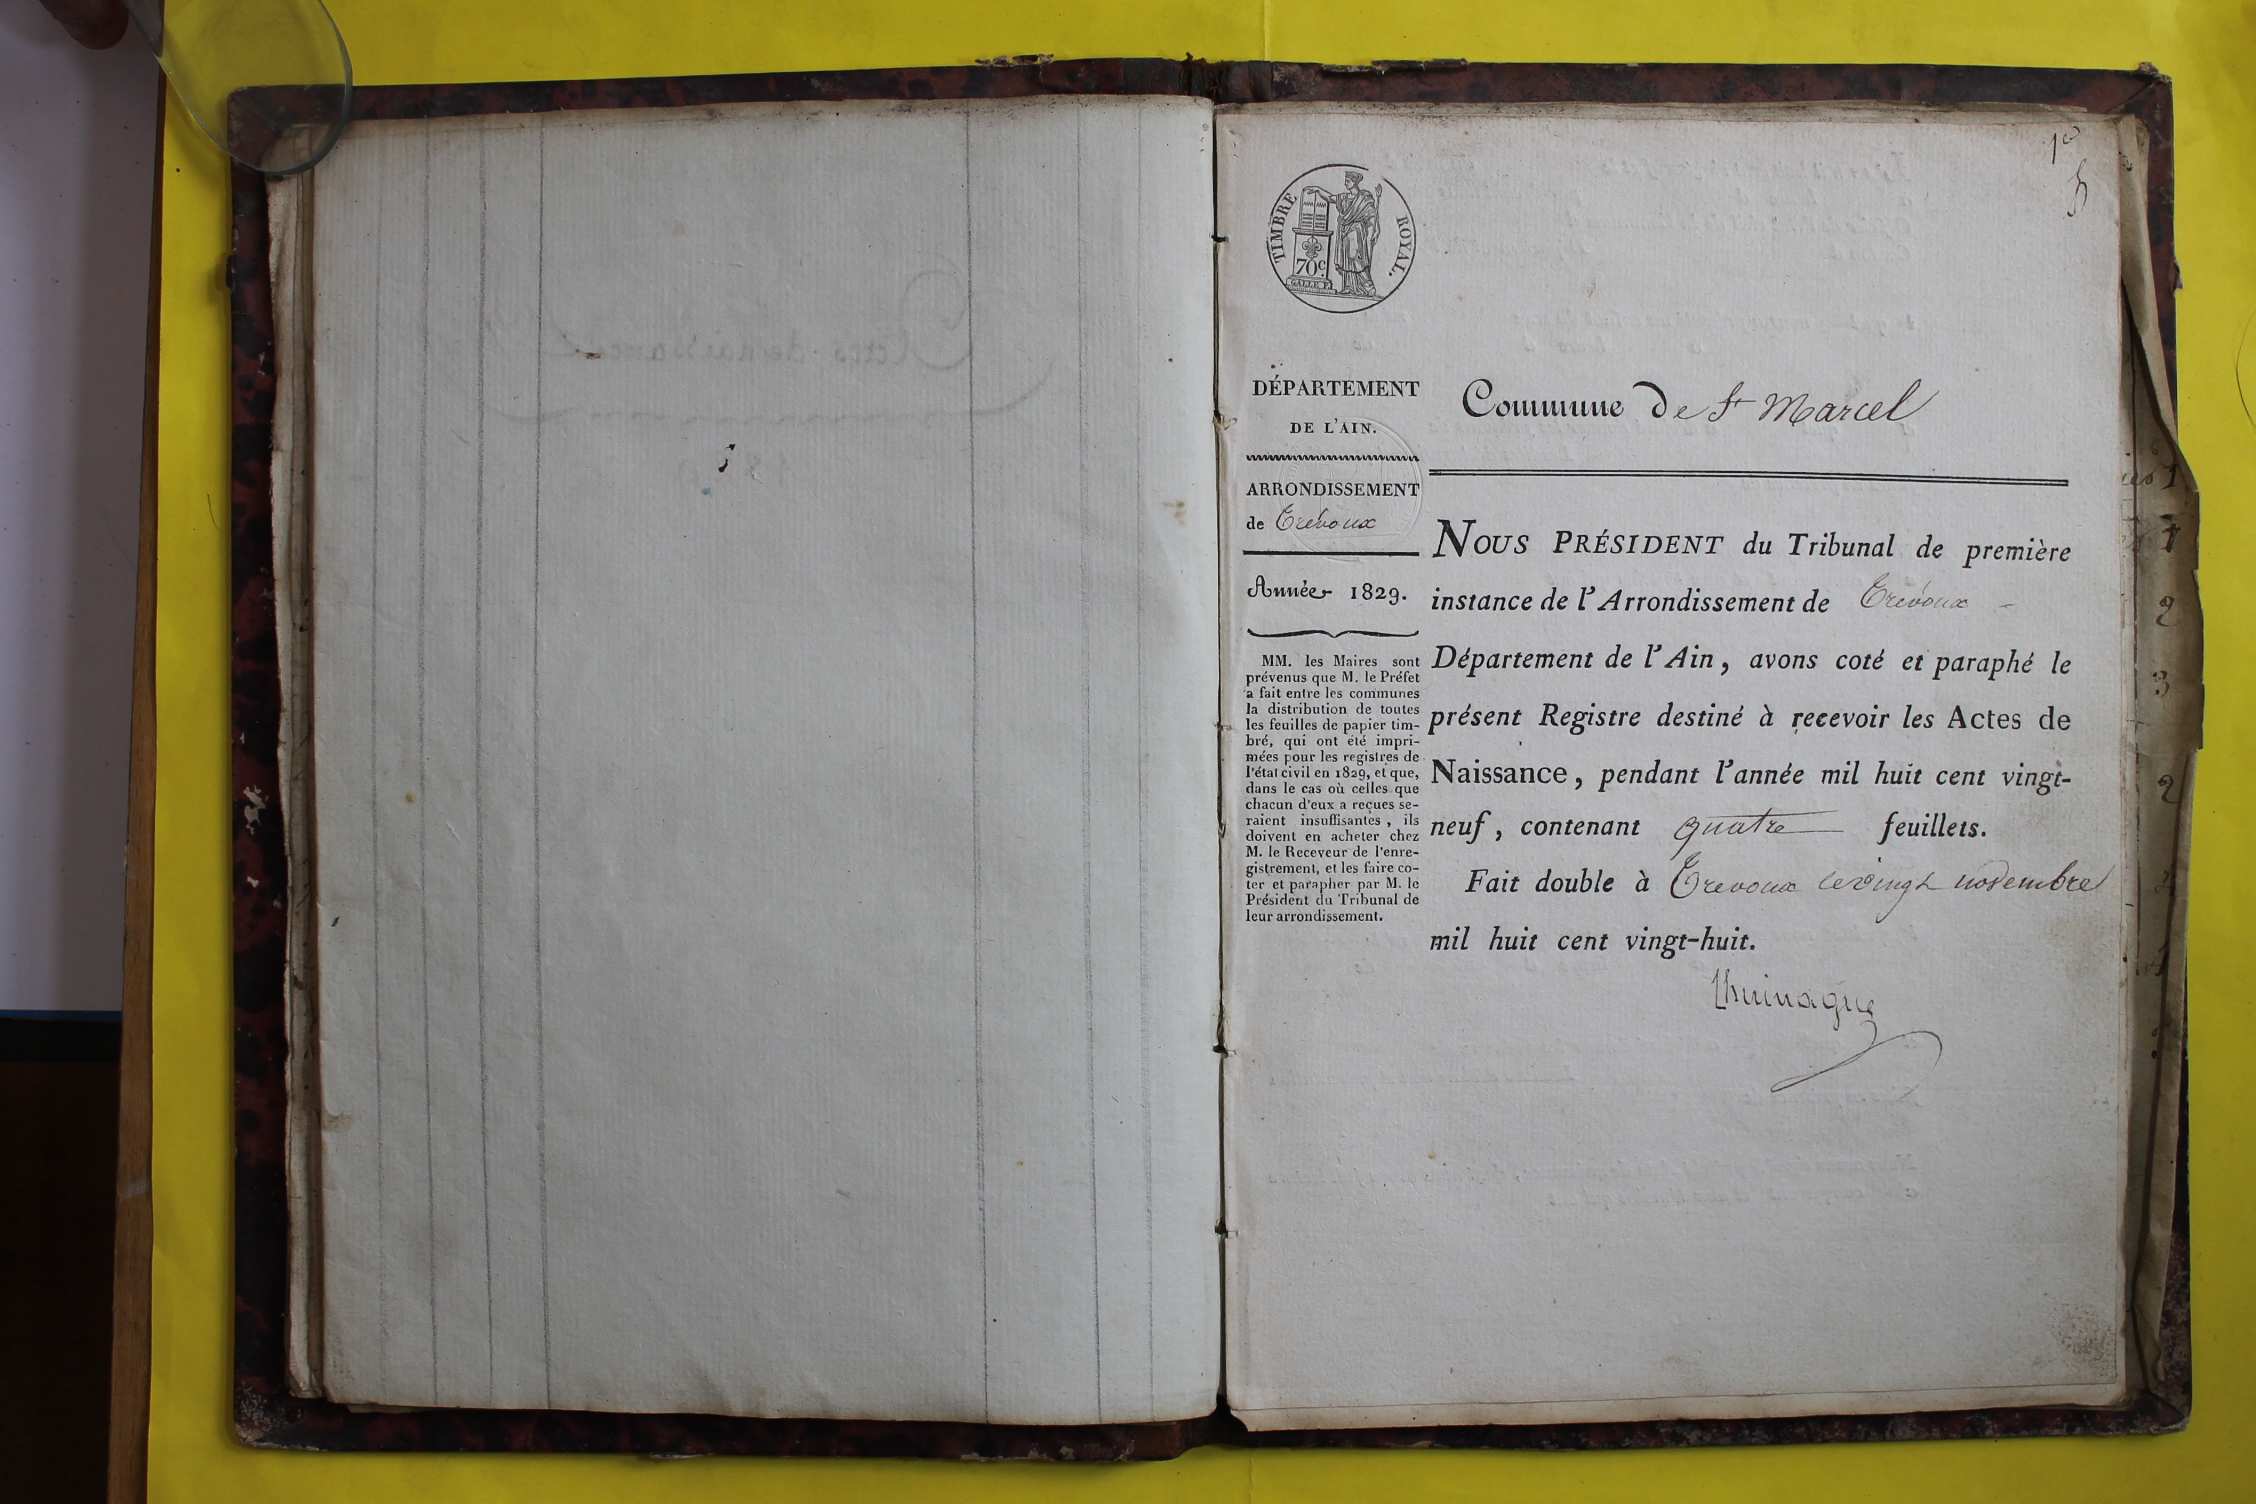 1er
TIMBRE ROYAL.
70c.
GALLE F.
DÉPARTEMENT
DE L'AIN.
ARRONDISSEMENT
de Trévoux
Année 1829.
MM. les Maires sont
prévenus que M. le Préfet
a fait entre les communes
la distribution de toutes
les feuilles de papier tim-
bré, qui ont été impri-
mées pour les registres de
l'état civil en 1829, et que,
dans le cas où celles que
chacun d'eux a reçues se-
raient insuffisantes, ils
doivent en acheter chez
M. le Receveur de l'enre-
gistrement, et les faire co-
ter et parapher par M. le
Président du Tribunal de
leur arrondissement.
Commune de St Marcel
NOUS PRÉSIDENT du Tribunal de première
instance de l'Arrondissement de Trévoux -
Département de l'Ain, avons coté et paraphé le
présent Registre destiné à recevoir les Actes de
Naissance, pendant l'année mil huit cent vingt-
neuf, contenant quatre feuillets.
Fait double à Trevoux le vingt novembre
mil huit cent vingt-huit.
1
1
2
3
2